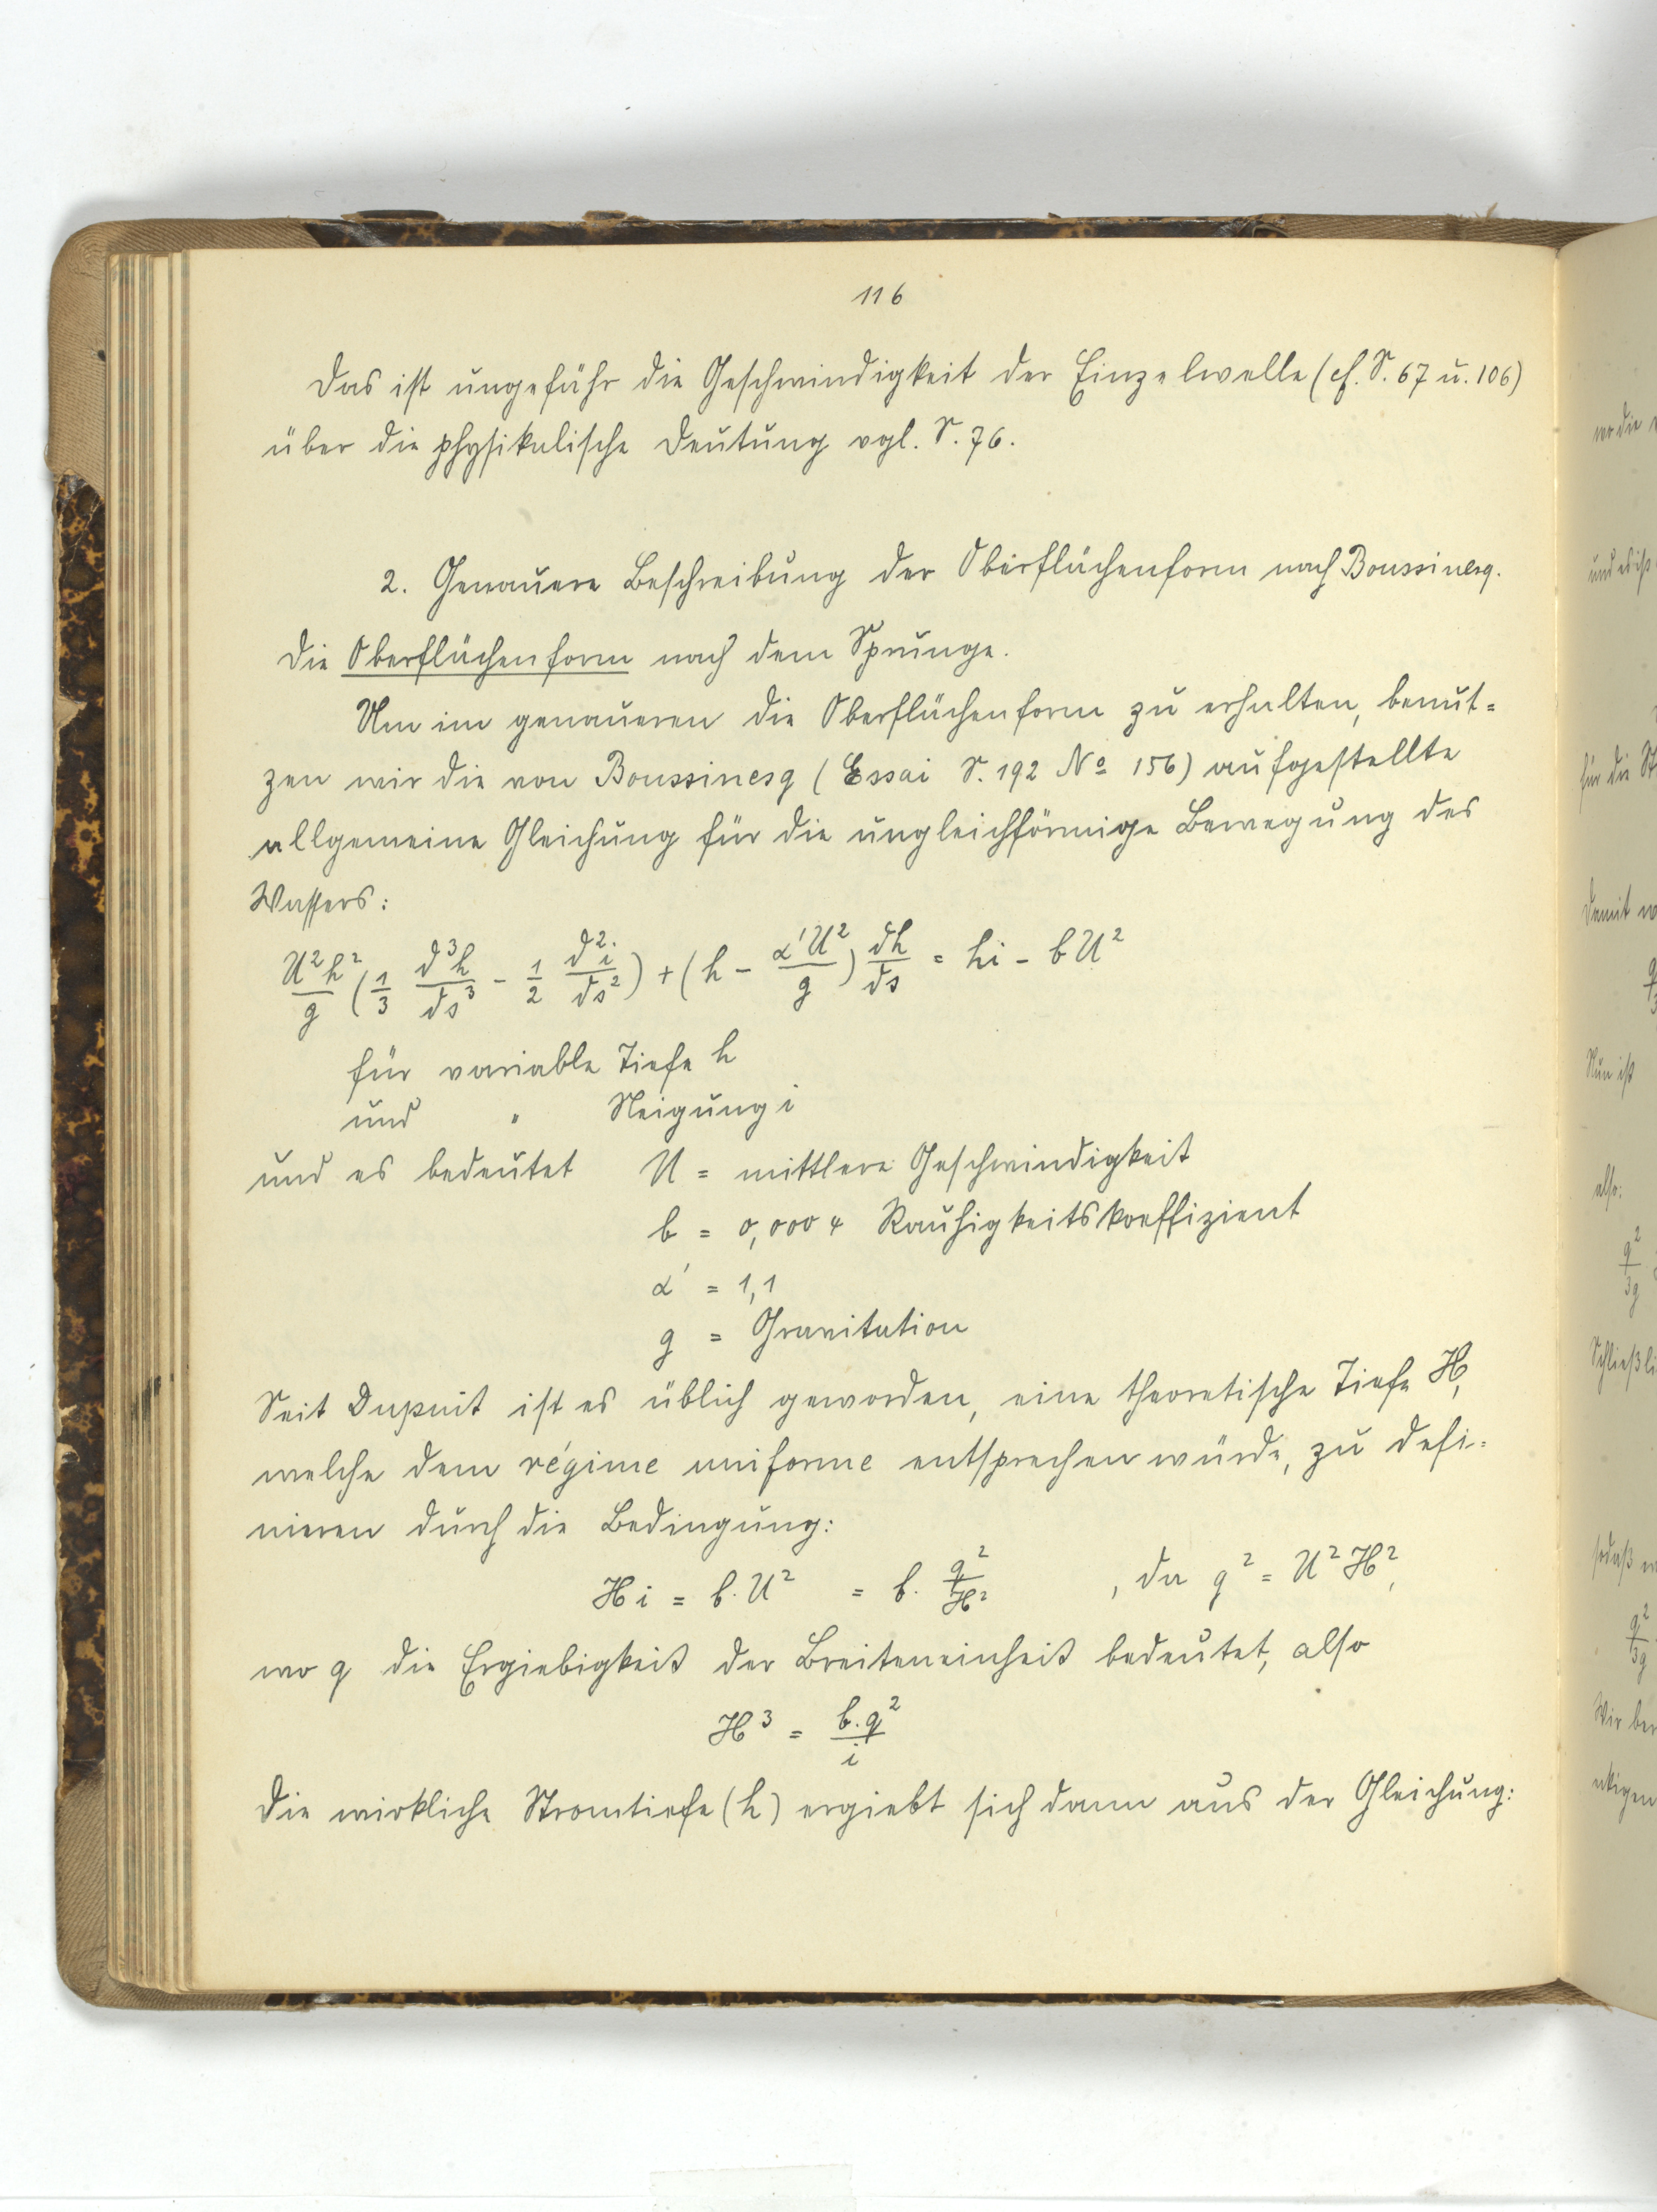 116
Das ist ungefähr die Geschwindigkeit der Einzelwelle (cf. S. 67 u. 106)
über die physikalische Deutung vgl. S. 76.
2. Genauere Beschreibung der Oberflächenform nach Boussinesq.
Die Oberflächenform nach dem Sprunge.
Um im genaueren die Oberflächenform zu erhalten, benut=
zen wir die von Boussinesq (Essai S. 192 No 156) aufgestellte
allgemeine Gleichung für die ungleichförmige Bewegung des
Wassers:
U²h²/g (1/3 d³h/ds³ - 1/2 d²i/ds²) + (h - α'U²/g) dh/ds = hi - bU²
für variable Tiefe h
und " Neigung i
und es bedeutet U = mittlere Geschwindigkeit
b = 0,0004 Rauhigkeitskoeffizient
α' = 1,1
g = Gravitation
Seit Dupuit ist es üblich geworden, eine theoretische Tiefe H,
welche dem régime uniforme entsprechen würde, zu defi=
nieren durch die Bedingung:
Hi = b. U² = b. q²/H² , da q² = U²H²,
wo q die Ergiebigkeit der Breiteneinheit bedeutet, also
H³ = b.q²/i
Die wirkliche Stromtiefe (h) ergiebt sich dann aus der Gleichung:
wo die
und es ist
für die
Damit
Nun ist
also:
q²/3g
Schließli
sodaß
q²/3g
Wir